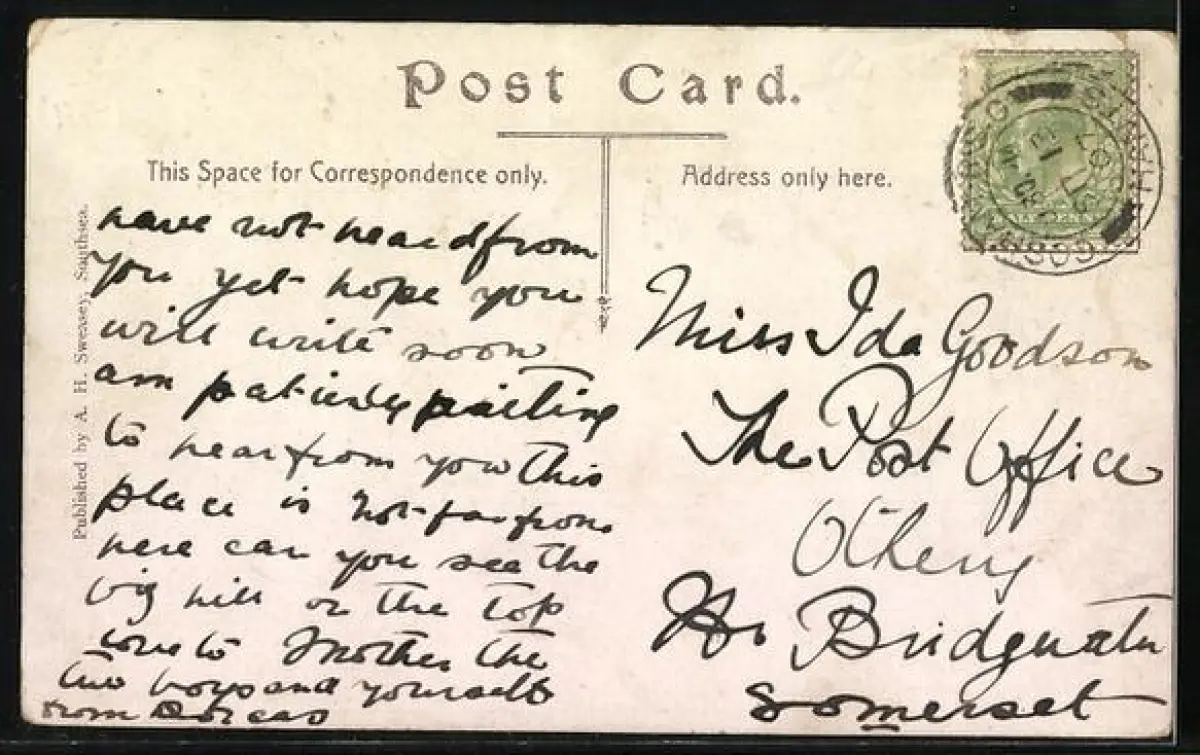 Post Card.
This Space for Correspondence only.
Address only here.
Published by A. H. Sweasey, Southsea.
have not heard from
you yet hope you
will write soon
am patiently waiting
to hear from you this
place is not far from
here can you see the
big hill on the top
love to Mother the
two boys and yourself
from Dorcas
Miss Ida Goodson
The Post Office
Othery
Nr Bridgwater
Somerset
HALFPENNY